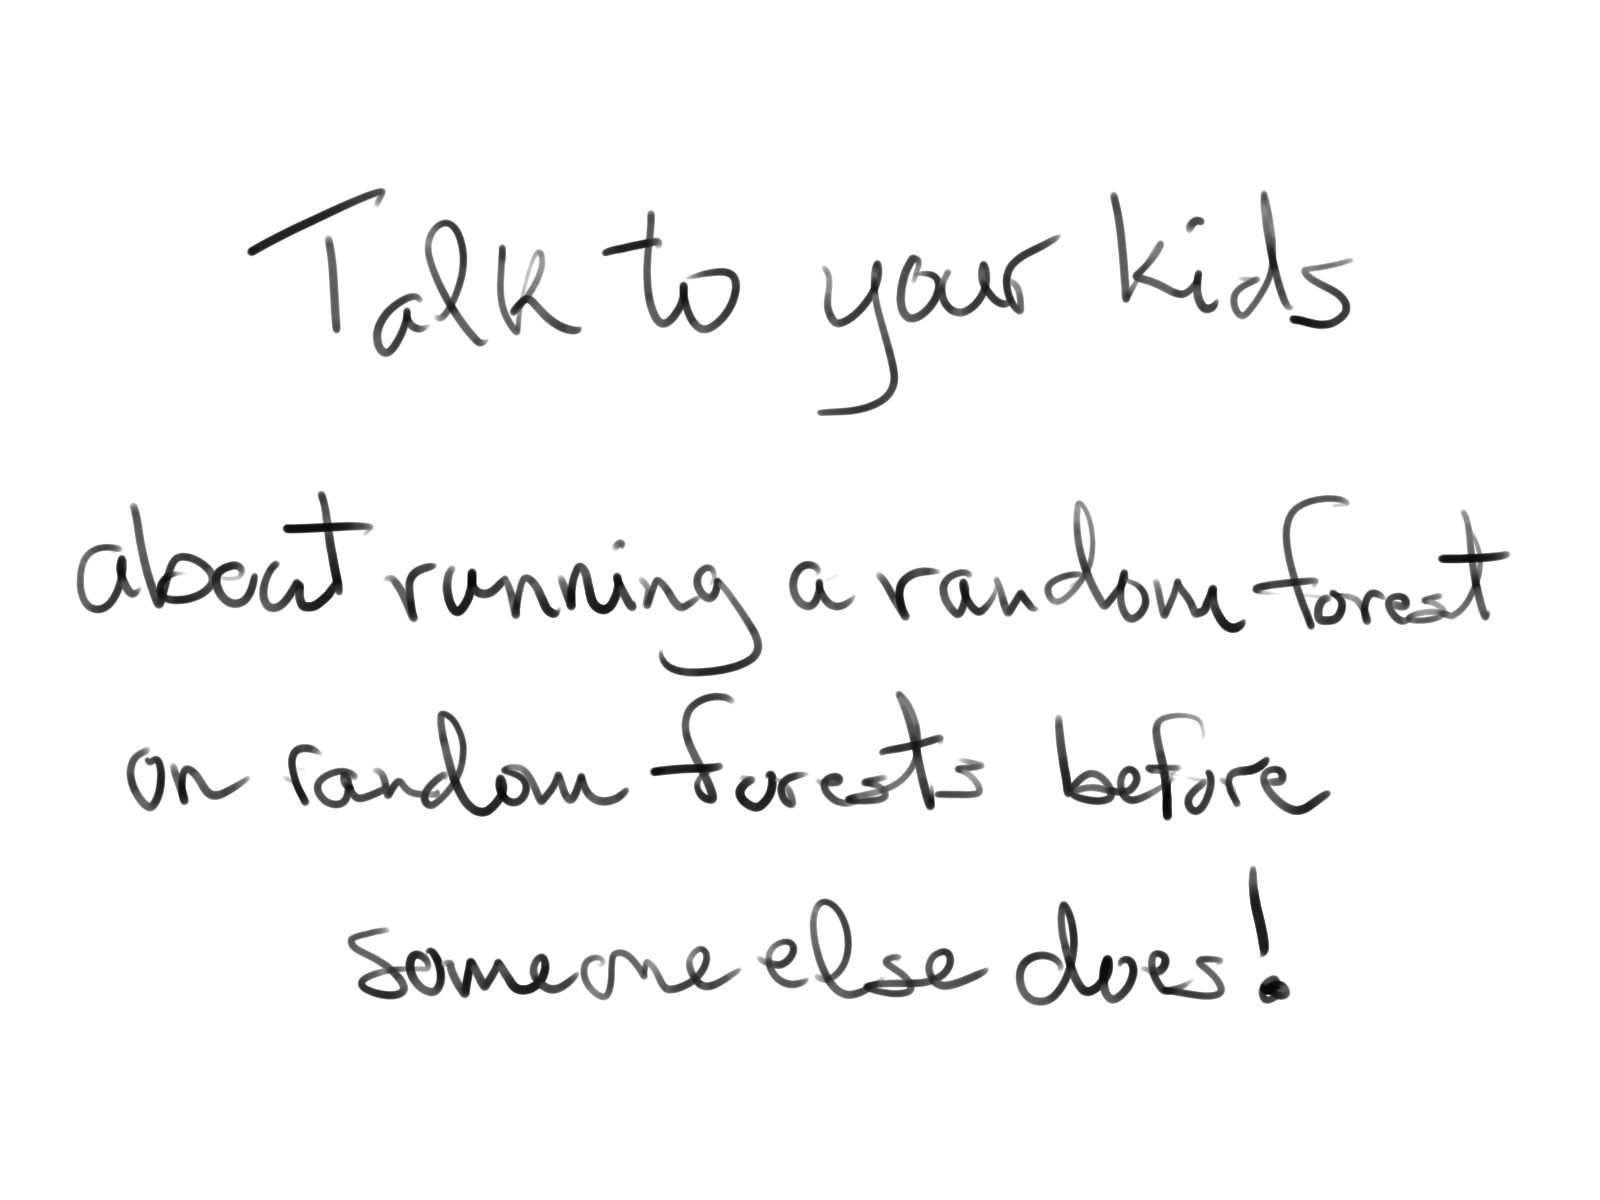 Talk to your kids
about running a random forest
on random forests before
someone else does!